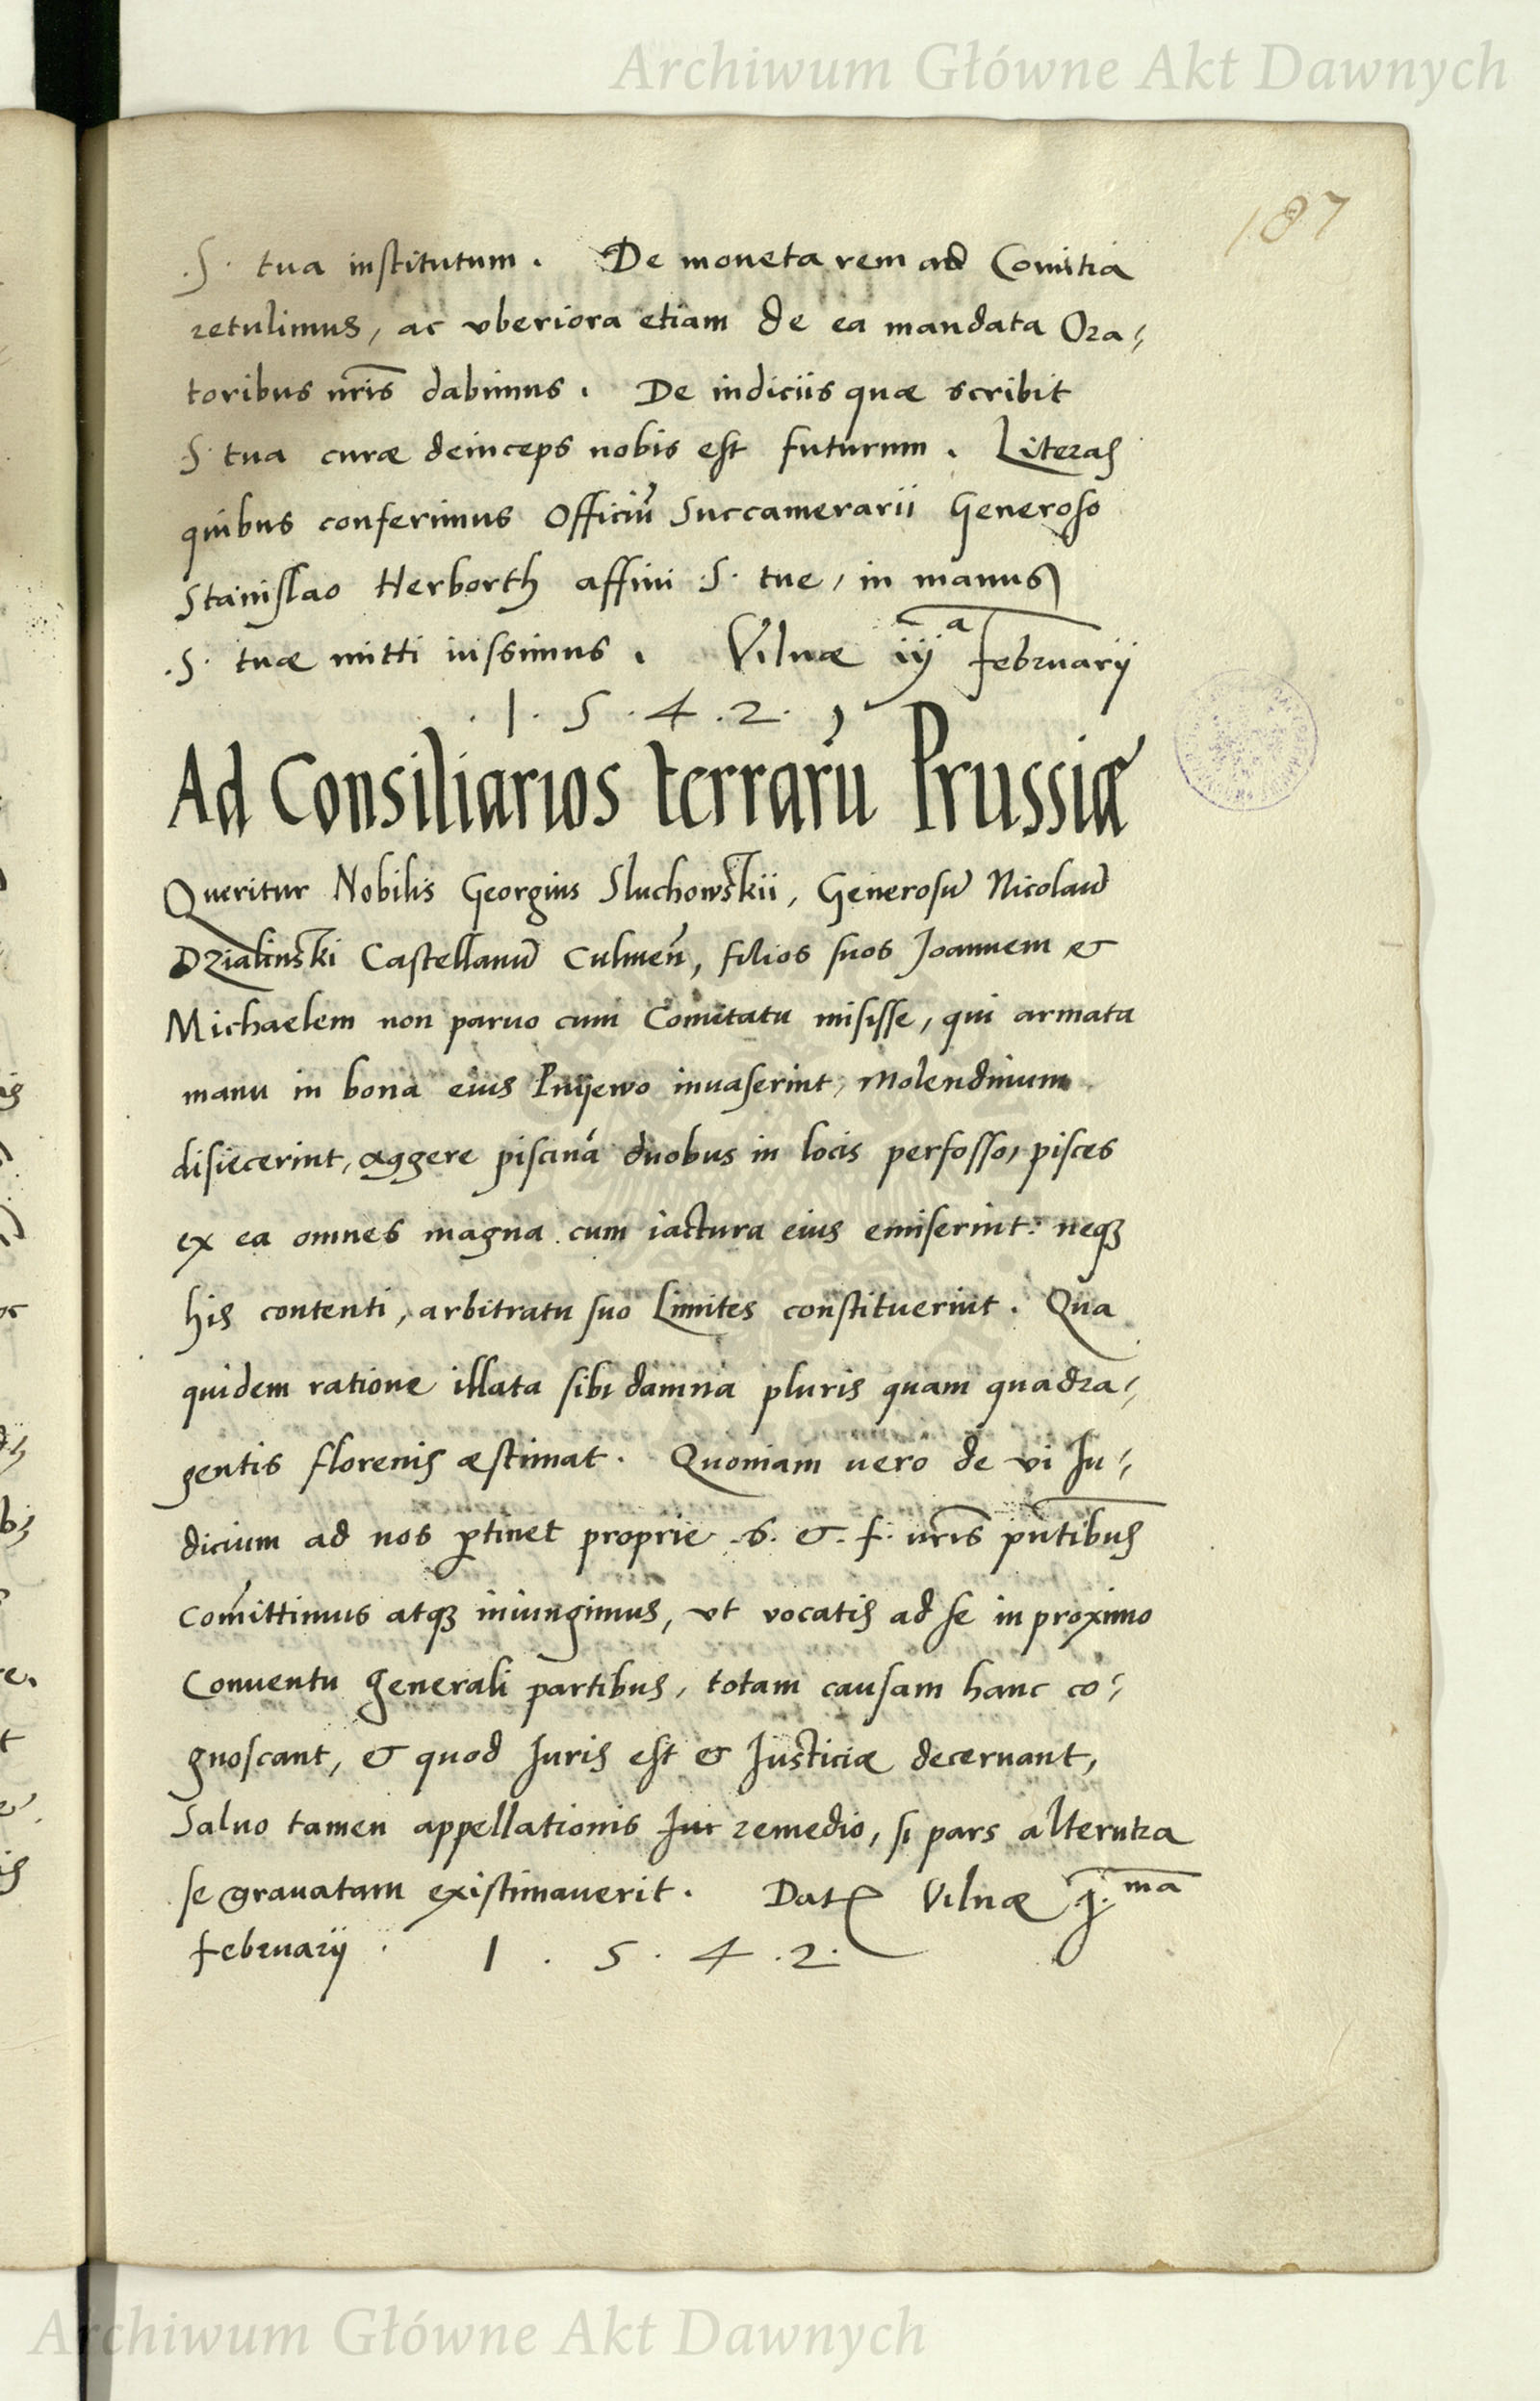 Archiwum Główne Akt Dawnych
187
.S. tua institutum. De moneta rem ad Comitia
retulimus, ac vberiora etiam de ea mandata Ora-
toribus nr̄is dabimus. De indiciis quæ scribit
S. tua curæ deinceps nobis est futurum. Literas
quibus conferimus Officiū Succamerarii Generoso
Stanislao Herborth affini .S. tue, in manus
.S. tuæ mitti iussimus. Vilnæ iij ᵃ February
.1.5.4.2.
Ad Consiliarios terrarū Prussiæ
Queritur Nobilis Georgius Sluchowskii, Generosū Nicolaū
Dzialinski Castellanū Culmeñ, filios suos Joannem &
Michaelem non paruo cum Comitatu misisse, qui armata
manu in bona eius Pnijewo inuaserint, Molendinum
disiecerint, aggere piscinā duobus in locis perfosso, pisces
ex ea omnes magna cum iactura eius emiserint: neqꝫ
his contenti, arbitratu suo Limites constituerint. Qua
quidem ratione illata sibi damna pluris quam quadra-
gentis florenis æstimat. Quoniam vero de vi Ju-
dicium ad nos ꝑtinet proprie .S. &. f. vr̄is pn̄tibus
com̄ittimus atqꝫ iniungimus, vt vocatis ad se in proximo
Conuentu generali partibus, totam causam hanc co-
gnoscant, & quod Juris est & Justiciæ decernant,
Saluo tamen appellationis Jur remedio, si pars alterutra
se grauatam existimauerit. Dat. Vilnæ j. ᵐᵃ
February . 1 . 5 . 4 . 2.
Archiwum Główne Akt Dawnych